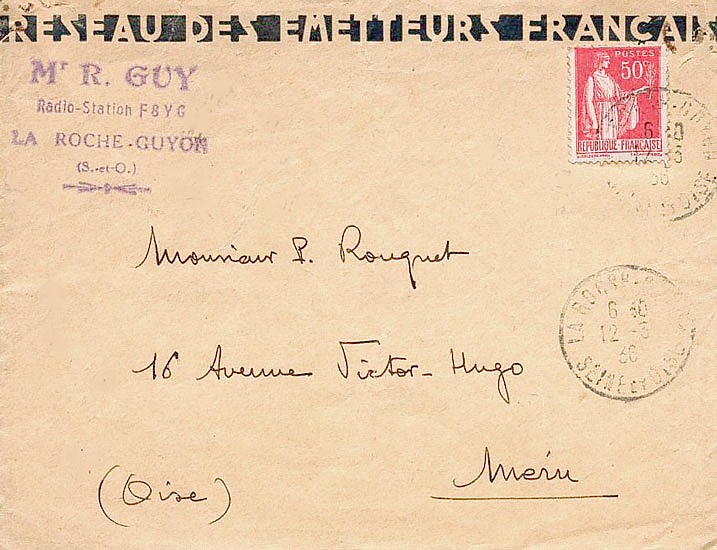 RESEAU DES EMETTEURS FRANÇAIS
Mr R. GUY
Radio-Station F8YG
LA ROCHE-GUYON
(S.-et-O.)
POSTES
50c
REPUBLIQUE-FRANÇAISE
6 30
12 - 3
36
Monsieur P. Rouguet
LA ROCHE-GUYON
6 30
12 - 3
36
SEINE ET OISE
16 Avenue Victor-Hugo
Meru
(Oise)